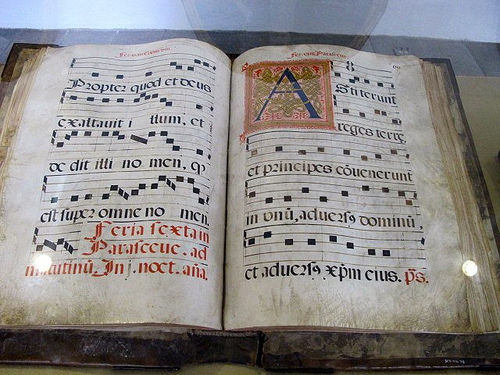 Propter quod et deus
exaltavit i llum, et
de dit illi no men, q²
est super omne no men.
Feria sexta in
Parasceve. ad
matutinū. In j. noct. aña.
Astiterunt
reges terre
et principes cōvenerunt
in onū, adversꝰ dominū,
et adversꝰ xp̄m eius. p̄s.